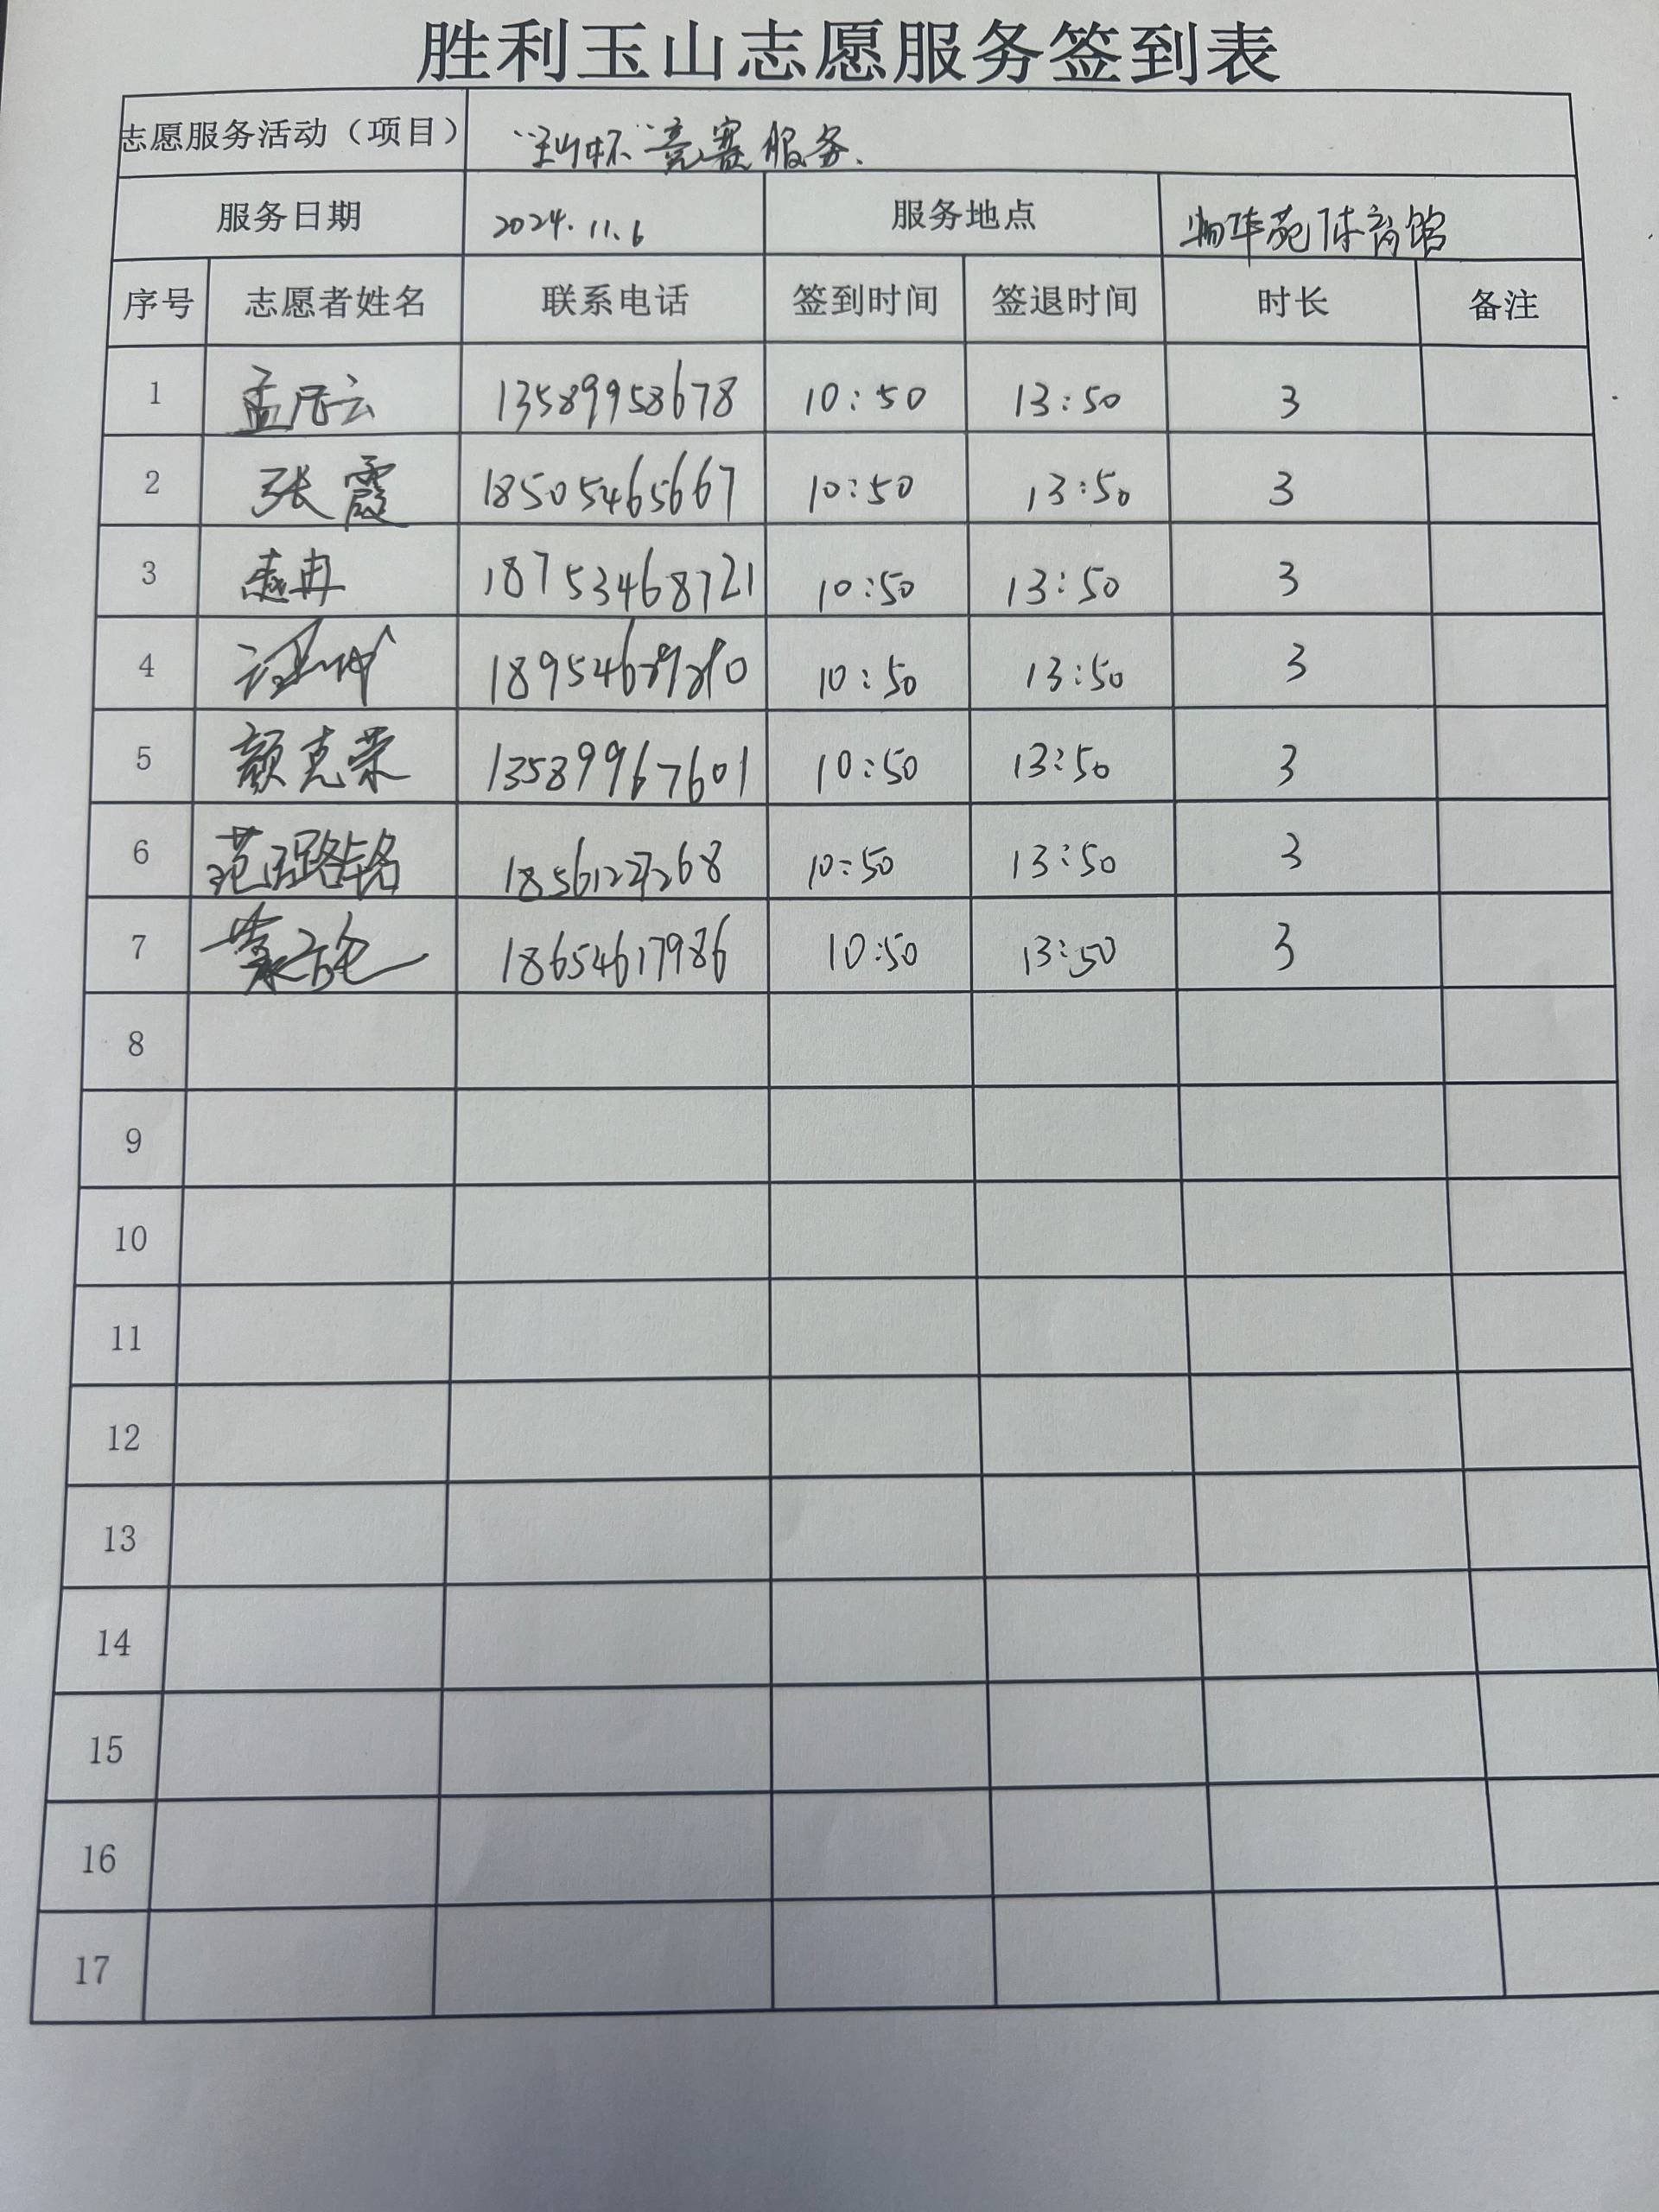 胜利玉山志愿服务签到表
志愿服务活动（项目） “玉山杯”竞赛服务.
服务日期 2024.11.6 服务地点 物华苑体育馆
序号 志愿者姓名 联系电话 签到时间 签退时间 时长 备注
1 孟 云 13589958678 10:50 13:50 3
2 张霞 18505465667 10:50 13:50 3
3 赵冉 18753468721 10:50 13:50 3
4 10:50 13:50 3
5 颜克荣 13589967601 10:50 13:50 3
6 10:50 13:50 3
7 18654617986 10:50 13:50 3
8
9
10
11
12
13
14
15
16
17